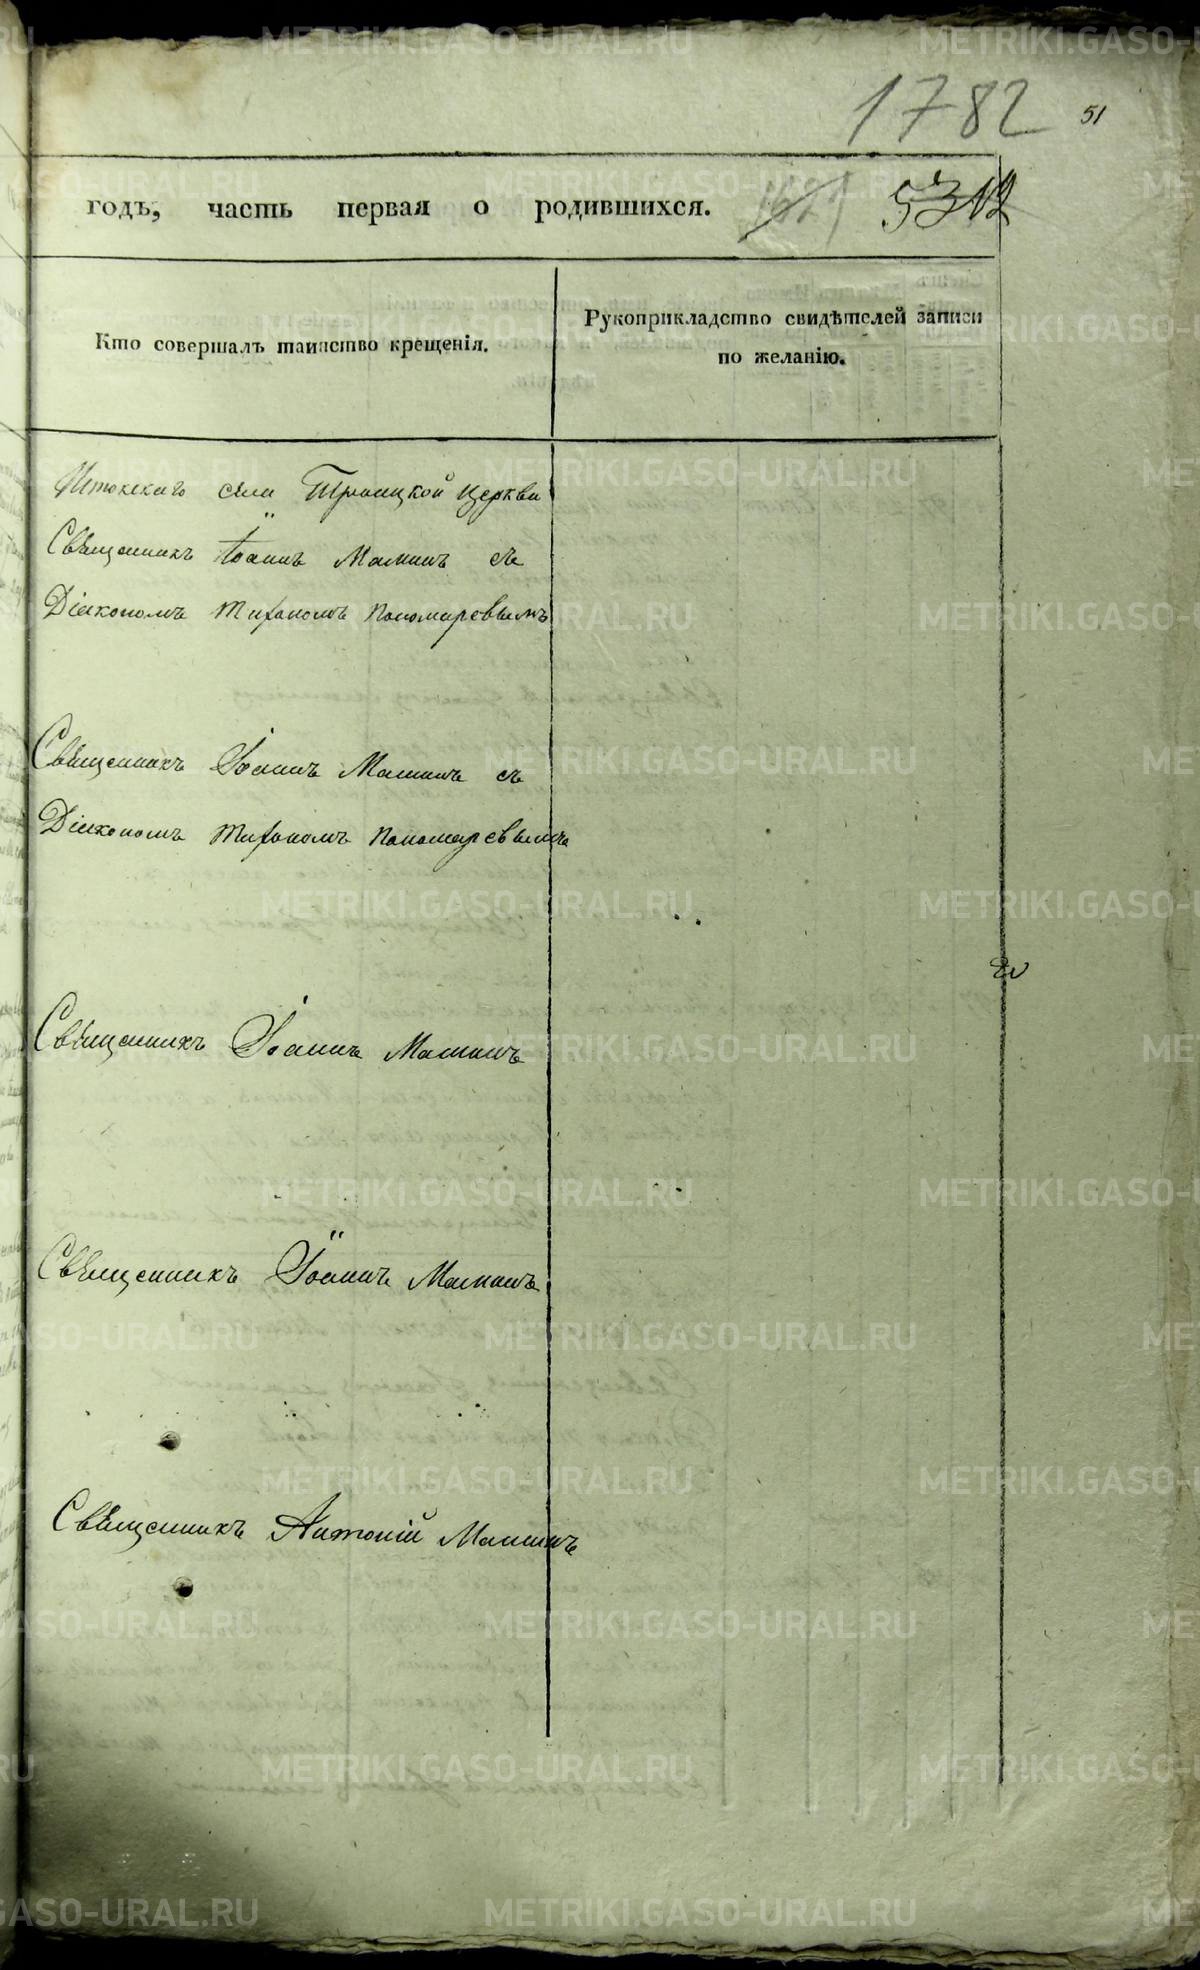 1782 51
годъ, часть первая о родившихся. 5312
Кто совершалъ таинство крещенія.
Рукоприкладство свидѣтелей записи
по желанію.
Истокскаго села Троицкой церкви
Священникъ Іоаннъ Маминъ съ
Діакономъ Тихономъ Пономаревымъ
Священникъ Іоаннъ Маминъ съ
Діакономъ Тихономъ Пономаревымъ
Священникъ Іоаннъ Маминъ
Священникъ Іоаннъ Маминъ
Священникъ Антоній Маминъ
METRIKI.GASO-URAL.RU